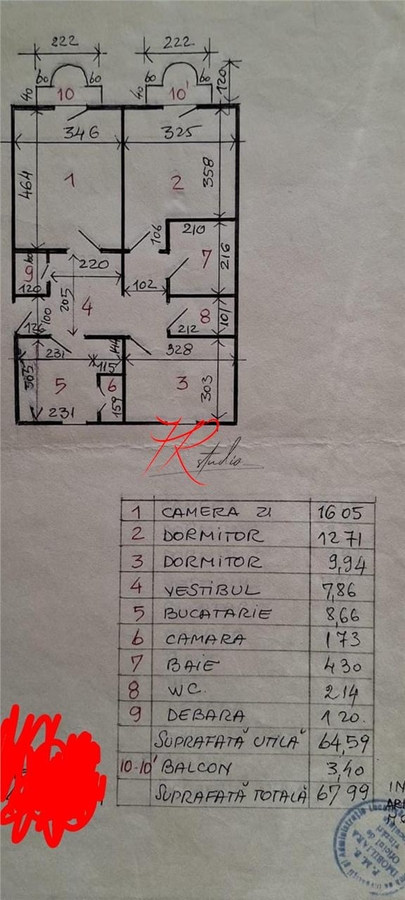 222 222
60 60 60 60
40 10 40 10' 120
346 325
464 1 2 358
106 210
9 60 220 7 216
120 102
4 205
100 8 101
126 212
231 115 144 328
303 5 6 3 303
231 159
7R studio
1 CAMERA ZI 16 05
2 DORMITOR 12 71
3 DORMITOR 9,94
4 VESTIBUL 7,86
5 BUCATARIE 8,66
6 CAMARA 1 73
7 BAIE 4 30
8 WC. 2 14
9 DEBARA 1 20.
SUPRAFATĂ UTILĂ 64,59
10-10' BALCON 3,40
SUPRAFATĂ TOTALĂ 67 99
IN